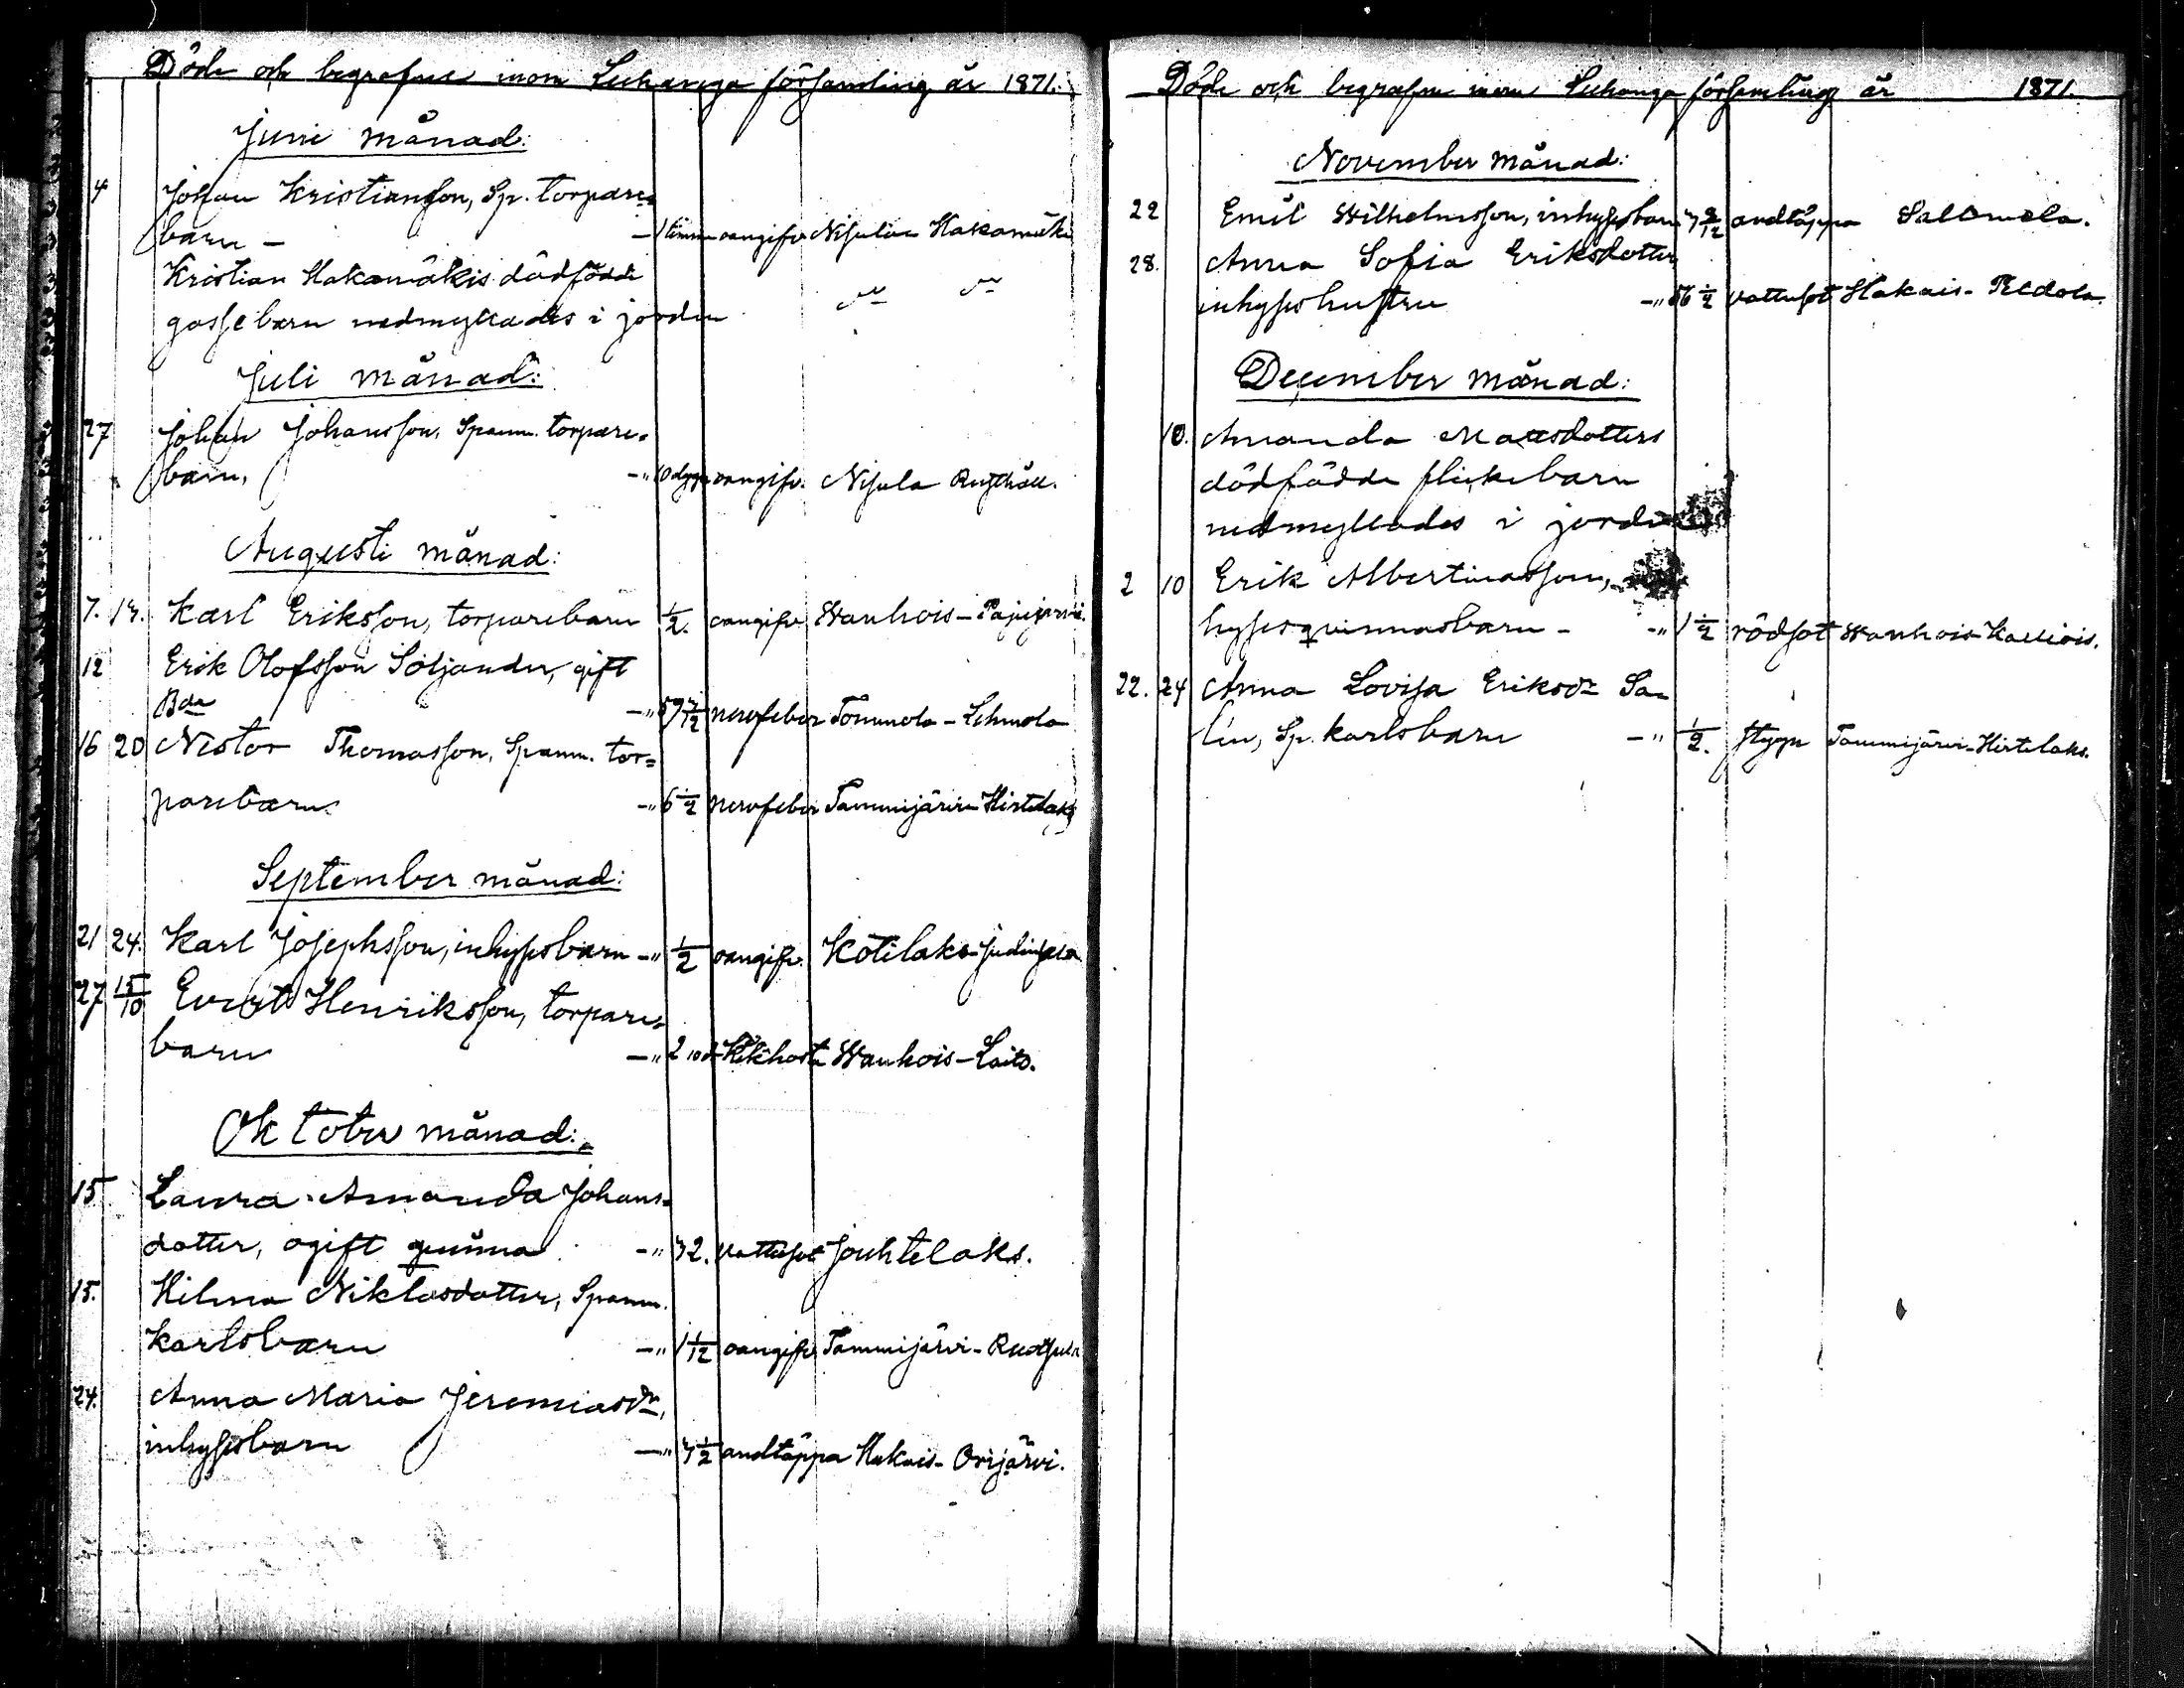 Döde och begrafne inom Luhanga församling år 1871.
Juni månad:
4 Johan Kristiansson, Sp. torpare=
barn - 1 timme oangifv. Nisula Hakamäki
Kristian Hakamäkis dödfödde
gossebarn nedmyllades i jorden
Juli månad:
27 Johan Johansson, Spanm. torpare=
barn, -" 10 dygn oangifv. Nisula
Augusti månad:
7. 14. Karl Eriksson, torparebarn 1/2. oangifv. Wanhois - Papijärvi.
12 Erik Olofsson Söljander, gift
Bde -" 59 7/12 nervfeber Tommola - Lehmola
16 20 Nestor Thomasson, Spanm. tor=
parebarn -" 6 1/2 nervfeber Tammijärvi Hirtelaks
September månad:
21 24. Karl Josephsson, inhysesbarn -" 1/2 oangifv. Kotilaks-Judinsalo
27 15/10 Evert Henriksson, torpare=
barn -" 2 10 d. Kikhosta Wanhois - Laits.
Oktober månad:
15 Laura Amanda Johans=
dotter, ogift qvinna -" 32. vattusot Jouhtelaks.
15. Hilma Niklasdotter, Spanm.
karlsbarn -" 1 1/12 oangifv. Tammijärvi - Ruotsula
24. Anna Maria Jeremiasdr,
inhysesbarn -" 3 1/2 andtäppa Hakais - Orijärvi.
Döde och begrafne inom Luhanga församling år 1871.
November månad:
22 Emil Wilhelmsson, inhysesbarn 3 2/12 andtäppa Sallmela.
28. Anna Sofia Eriksdotter,
inhyseshustru -" 56 1/2 vattusot Hakais - Peldola.
December månad:
10. Amanda Mattsdotters
dödfödde flickebarn
nedmyllades i jorden
2 10 Erik Albertinasson,
hysesqvinnasbarn - -" 1 1/2 rödsot Wanhois-Kalliois.
22. 24 Anna Lovisa Eriksdr Sa=
lin, Sp. karlsbarn -" 1/2. stygn Tammijärvi-Hirtelaks.